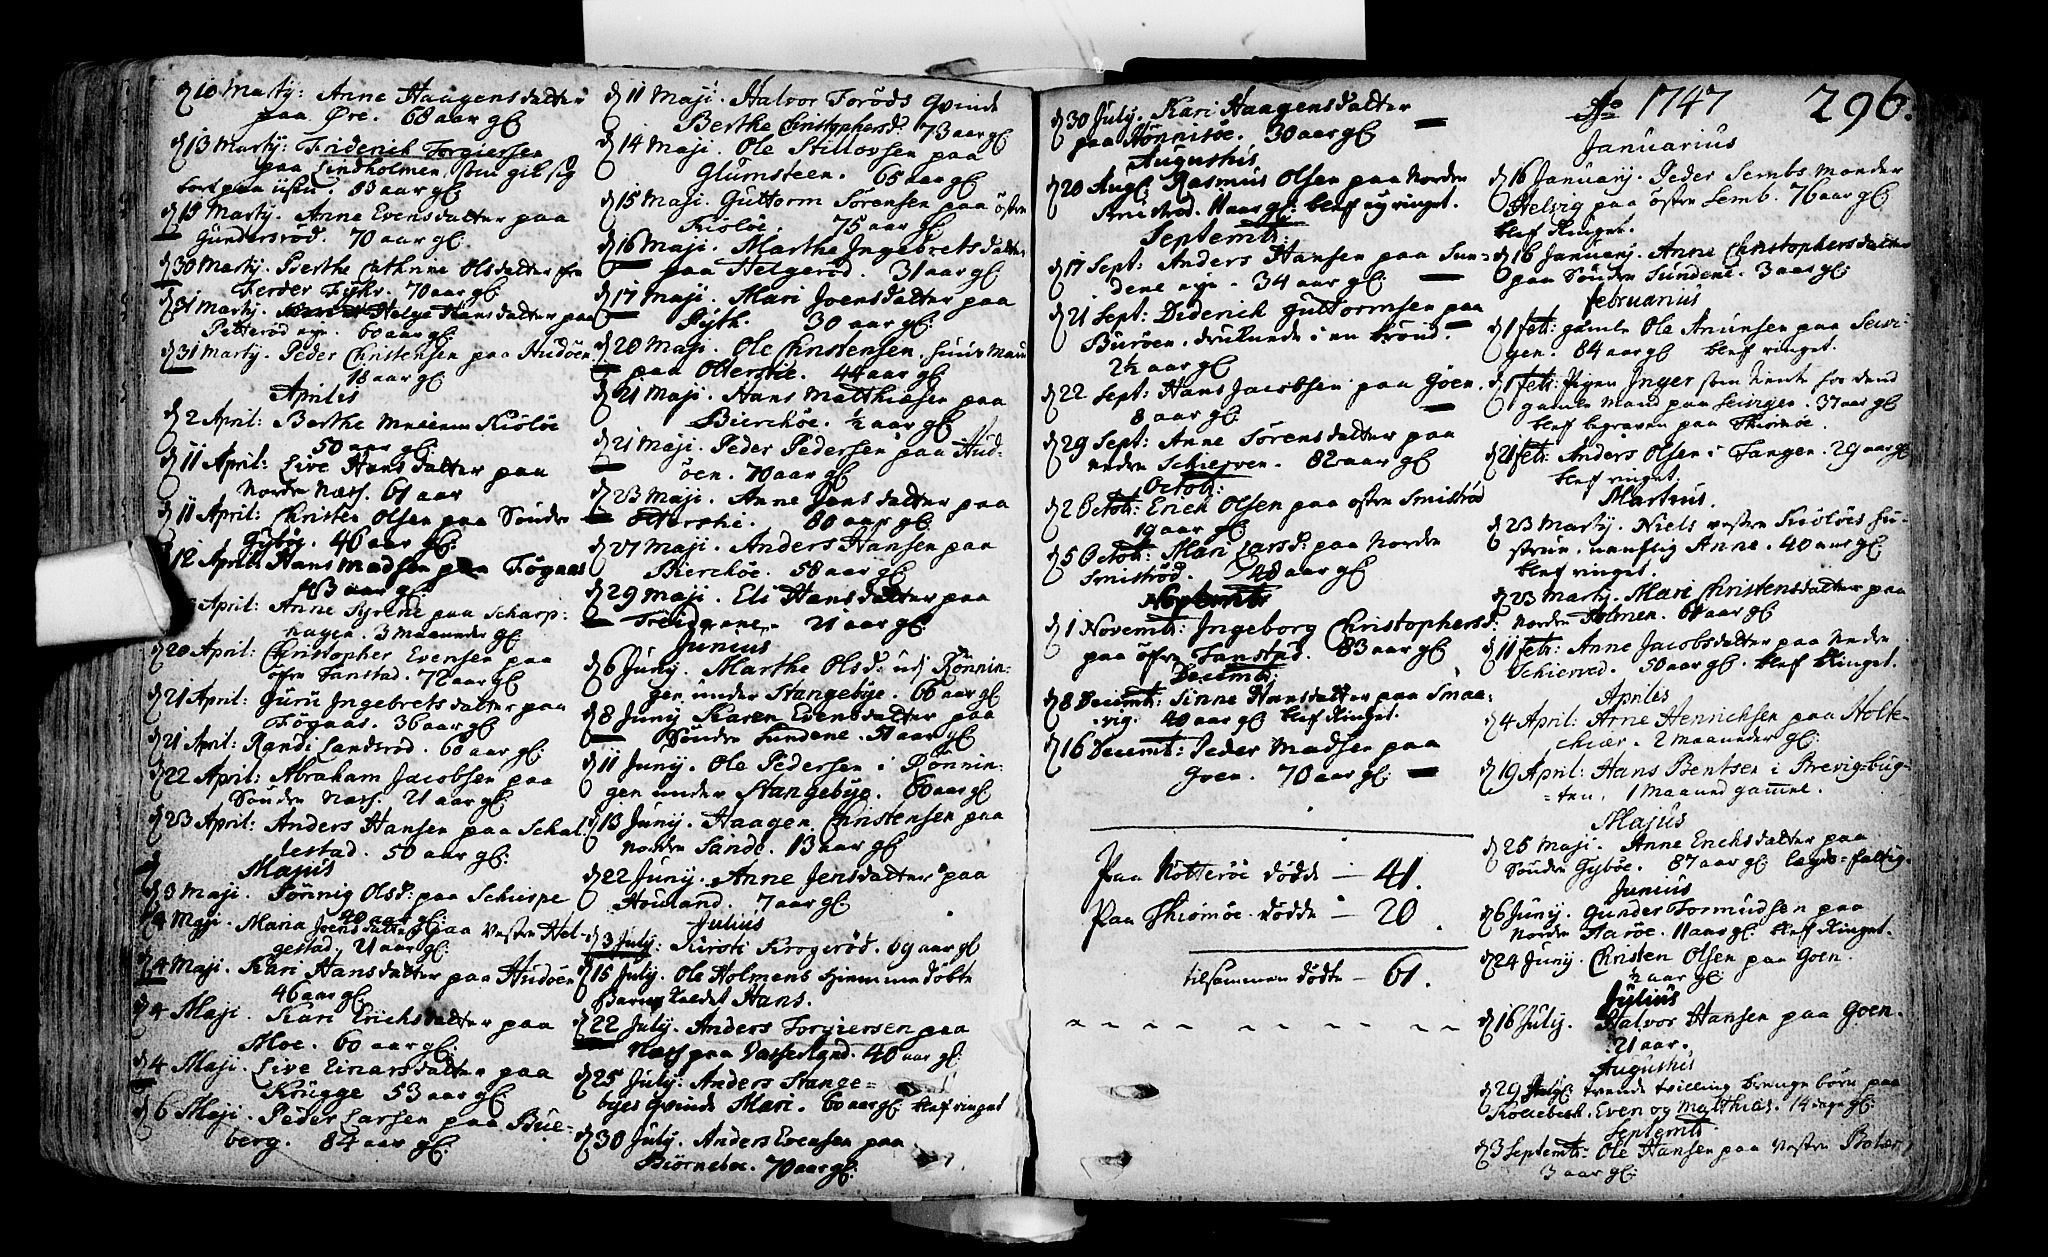 d 10 Martij: Anne Haagensdatter
paa Øre. 68 aar gl:
d 13 Martij: Friderich Torgiersen
paa Lindholmen, som gik sig
bort paa iisen. 53 aar gl:
d 15 Martij. Anne Evensdatter paa
Gundersrød. 70 aar gl:
d 30 Martij. Berthe Cathrine Olsdatter fra
Ferder Fyhr. 70 aar gl:
d 31 Martij. Helge Hansdatter paa
Petterød eye. 60 aar gl:
d 31 Martij. Peder Christensen paa Hudöen.
18 aar gl:
Aprilis
d 2 April: Berthe Kiölöe
50 aar gl:
d 11 April: Live Hansdatter paa
Nordre Næss. 61 aar
d 11 April: Christen Olsen paa Söndre
Gybøe. 46 aar gl:
12 April: Hans Madsen paa Fögaas
43 aar gl:
April: Anne Kyrene paa Scharp-
hagen. 3 maaneder gl:
d 20 April: Christopher Evensen paa
öfre Tanstad. 72 aar gl:
d 21 April: Guru Ingebretsdatter paa
Fögaas. 36 aar gl:
d 21 April: Randi Landsrød. 60 aar gl:
d 22 April: Abraham Jacobsen paa
Söndre Næss. 21 aar gl:
d 23 April: Anders Hansen paa Schal-
lestad. 50 aar gl:
Majus
d 3 Maji. Tönnig Olsd: paa Schierpe
40 aar gl:
d 4 Maji. Maria Joensdatter paa Vestre Hel-
gestad. 21 aar gl:
d 4 Maji. Kari Hansdatter paa Hudöen
46 aar gl:
d 4 Maji. Kari Erichsdatter paa
Moe. 60 aar gl:
d 4 Maji. Live Einarsdatter paa
Krügge 53 aar gl:
d 6 Maji. Peder Larsen paa Bue-
berg. 84 aar gl:
d 11 Maji. Halvor Torøds qvinde
Berthe Christophersd: 73 aar gl:
d 14 Maji. Ole Stillovsen paa
Glumsteen. 65 aar gl:
d 15 Maji. Guttorm Sörensen paa östre
Kiölöe. 75 aar gl:
d 16 Maji. Marthe Ingebretsdatter
paa Helgerød. 31 aar gl:
d 17 Maji. Mari Joensdatter paa
Pyth. 30 aar gl:
d 20 Maji. Ole Christensen, huus mand
paa Oterstie. 44 aar gl:
d 21 Maji. Hans Matthiasen paa
Bierchöe. ½ aar gl:
d 21 Maji. Peder Pedersen paa Hud-
öen. 70 aar gl:
d 23 Maji. Anne Jensdatter paa
Oterstie. 80 aar gl:
d 27 Maji. Anders Hansen paa
Bierchöe. 58 aar gl:
d 29 Maji. Els Hansdatter paa
Treidene. 21 aar gl:
Junius
d 6 Junij. Marthe Olsd: udj Rönnin-
gen under Stangebye. 66 aar gl:
d 8 Junij Karen Evensdatter paa
Söndre Sundene. 51 aar gl:
d 11 Junij. Ole Pedersen i Rönnin-
gen under Stangebye. 60 aar gl:
d 13 Junij. Haagen Christensen paa
Nordre Sande. 13 aar gl:
d 22 Junij. Anne Jensdatter paa
Houland. 7 aar gl:
Julius
d 3 July: Kirsti Krogerød. 69 aar gl:
d 15 July. Ole Holmens hiemme døbte
Barn kaldet Hans.
d 22 July. Anders Torgiersen paa
Næss paa Vasserland. 40 aar gl:
d 25 July: Anders Stange-
byes qvinde Mari. 60 aar gl: blef ringet
d 30 July. Anders Evensen paa
Biörneboe. 70 aar gl:
d 30 July. Kari Haagensdatter
paa Hönnisöe. 30 aar gl:
Augustus
d 20 Aug: Rasmus Olsen paa Nordre
Smistrød. 11 aar gl: blef ey ringet.
Septemb:
d 17 Sept: Anders Hansen paa Sun-
dene eye. 34 aar gl:
d 21 Sept: Diderich Guttormsen paa
Buröen. druknede i en brönd.
2½ aar gl:
d 22 Sept: Hans Jacobsen paa Goen.
8 aar gl:
d 29 Sept: Anne Sörensdatter paa
nedre Schierven. 82 aar gl:
Octob:
d 2 Octob: Erich Olsen paa östre Smistrød
19 aar gl:
d 5 Octob: Mari Larsd: paa Nordre
Smistrød. 48 aar gl:
Novembr
d 1 Novemb: Ingeborg Christophersd:
paa öfre Tanstad. 83 aar gl:
Decemb:
d 8 Decemb: Sinne Hansdatter paa Smae-
vig. 40 aar gl: blef Ringet.
d 16 Decemb: Peder Madsen paa
Goen. 70 aar gl:
Paa Nötteröe dödde — 41.
Paa Thiömöe dödde — 20.
tilsammen dödde — 61.
Ao 1747
296.
Januarius
d 16 Januarij. Peder Sembs Mander
Helvig paa östre Semb. 76 aar gl:
blef Ringet.
d 16 Januarij. Anne Christophersdatter
paa Söndre Sundene. 3 aar gl:
februarius
d 1 feb: gamle Ole Amunsen paa Sevi-
gen. 84 aar gl: blef ringet.
d 1 feb: Pigen Inger som tiente hos dend
gamle Mand paa Seivigen. 37 aar gl:
blef begraven paa Thiömöe.
d 21 feb: Anders Olsen i Tangen. 29 aar gl:
blef ringet.
Martius.
d 23 Martij. Niels vestre Kiölöes hu-
strue, nafnlig Anne. 40 aar gl:
blef ringet.
d 23 Martij. Mari Christensdatter paa
Nordre Holmen. 61 aar gl:
d 11 feb: Anne Jacobsdatter paa Nedre
Schierved. 50 aar gl: blef Ringet.
Aprilis
d 4 April: Arne Henrichsen paa Holte-
schiær. 2 Maaneder gl:
d 19 April: Hans Bentsen i Brevig=bug-
ten. 1 Maaned gamel.
Majus
d 25 Maji. Anne Erichsdatter paa
Söndre Gyböe. 87 aar gl: Lægds=fattig.
Junius
d 6 Junij. Gunder Tormudsen paa
Nordre Aaröe. 11 aar gl: blef Ringet.
d 24 Junij. Christen Olsen paa Goen.
½ aar gl:
Julius
d 16 July. Halvor Hansen paa Goen.
21 aar.
Augustus
d 29 Aug: tvende tvilling drenge börn paa
Kollebech. Even og Matthias. 14 dage gl:
Septemb:
d 3 Septemb: Ole Hansen paa Vestre Bolær
3 aar gl: